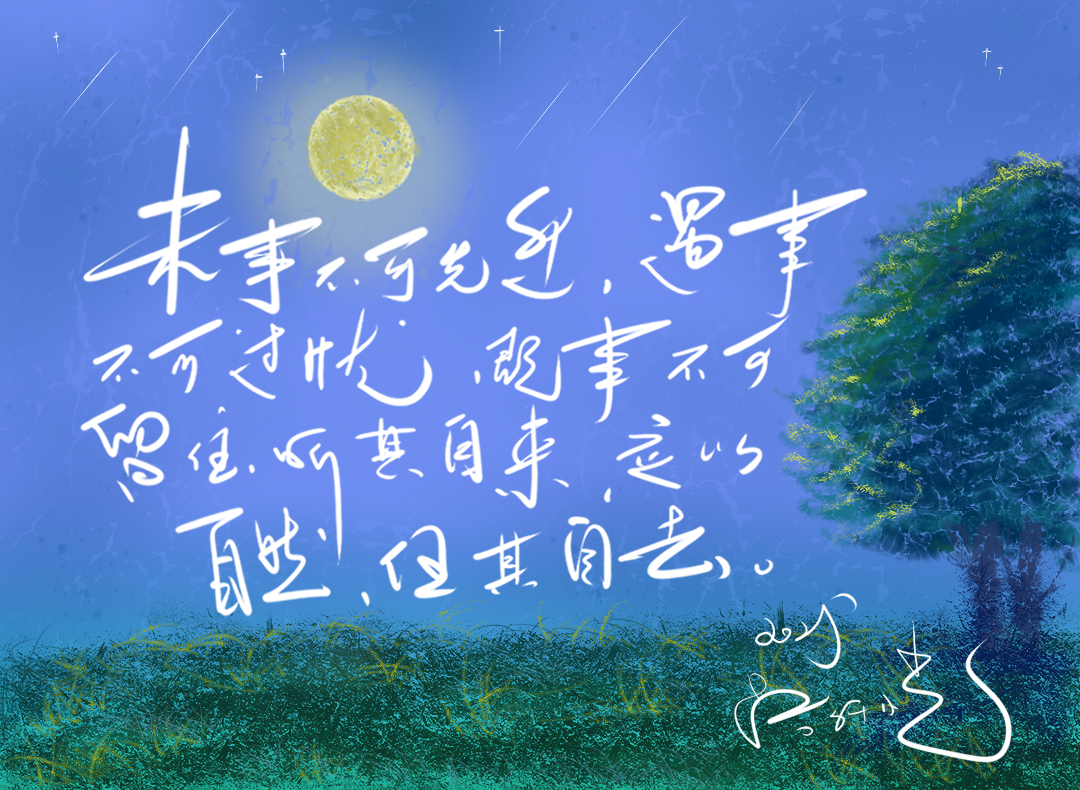 未事不可先迎，遇事
不可过忧，既事不可
留住，听其自来，应以
自然，但其自去。